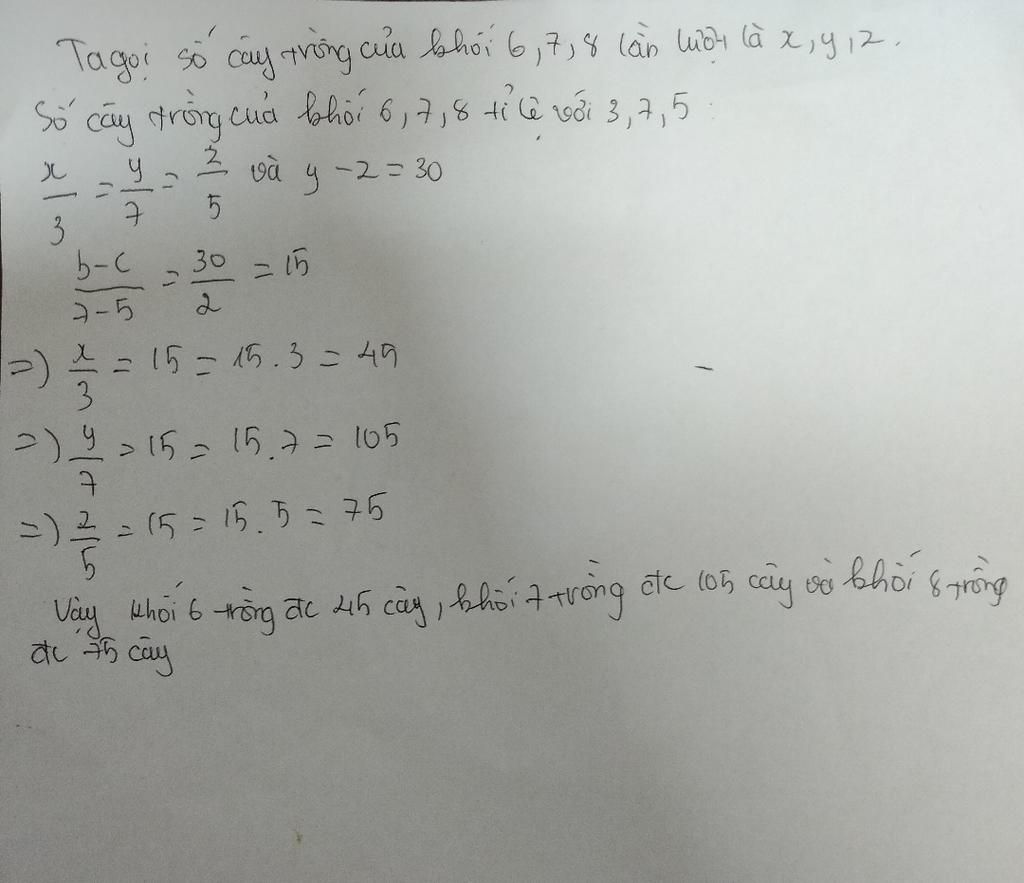 Ta gọi số cây trồng của khối 6,7,8 lần lượt là x,y,z.
Số cây trồng của khối 6,7,8 tỉ lệ với 3,7,5
x/3 = y/7 = z/5 và y - z = 30
b-c/7-5 = 30/2 = 15
=) x/3 = 15 = 15.3 = 45
=) y/7 = 15 = 15.7 = 105
=) z/5 = 15 = 15.5 = 75
Vậy khối 6 trồng đc 45 cây, khối 7 trồng đc 105 cây và khối 8 trồng
đc 75 cây